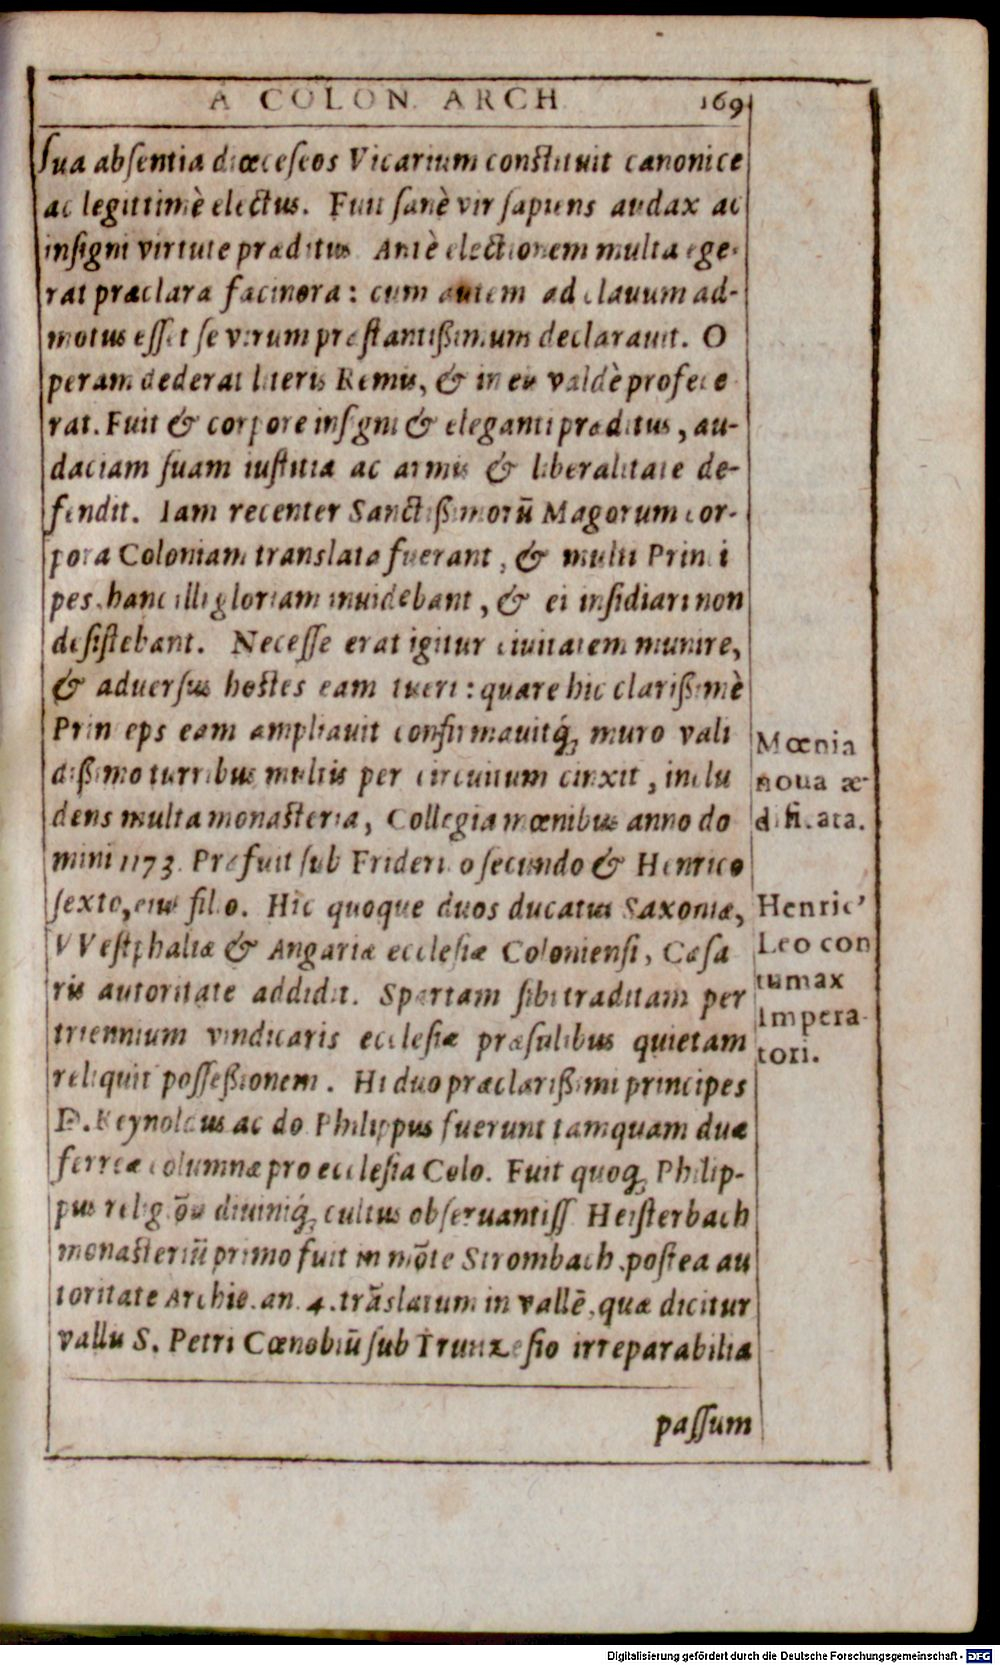 A COLON. ARCH 169
sua absentia diœceseos Vicarium constituit canonice
ac legittimè electus. Fuit sanè vir sapiens audax ac
insigni virtute præditus Antè electionem multa ege-
rat præclara facinora: cum autem ad clauum ad-
motus esset se virum præstantißimum declarauit. O
peram dederat literis Remis, & in eis valdè profece
rat. Fuit & corpore insigni & eleganti præditus, au-
daciam suam iustitia ac armis & liberalitate de-
fendit. Iam recenter Sanctißimorũ Magorum cor-
pora Coloniam translata fuerant, & multi Princi
pes hanc illi gloriam inuidebant, & ei insidiari non
desistebant. Necesse erat igitur ciuitatem munire,
& aduersus hostes eam tueri: quare hic clarißimè
Princeps eam ampliauit confirmauitq́; muro vali
dißimo turribus multis per circuitum cinxit, inclu
dens multa monasteria, Collegia mœnibus anno do
mini 1173. Præfuit sub Friderico secundo & Henrico
sexto, eius filio. Hic quoque duos ducatus Saxoniæ,
VVestphaliæ & Angariæ ecclesiæ Coloniensi, Cæsa
ris autoritate addidit. Spartam sibi traditam per
triennium vindicaris ecclesiæ præsulibus quietam
reliquit posseßionem. Hi duo præclarißimi principes
D. Reynoldus ac do Philippus fuerunt tamquam duæ
ferreæ columnæ pro ecclesia Colo. Fuit quoq; Philip-
pus religiõis diuiniq́; cultus obseruantiss Heisterbach
monasteriũ primo fuit in mõte Strombach, postea au
toritate Archie. an. 4. trãslatum in vallẽ, quæ dicitur
vallis S. Petri Cœnobiũ sub Trunzesio irreparabilia
passum
Mœnia
noua æ-
dificata.
Henric’
Leo con
tumax
Impera-
tori.
Digitalisierung gefördert durch die Deutsche Forschungsgemeinschaft - DFG